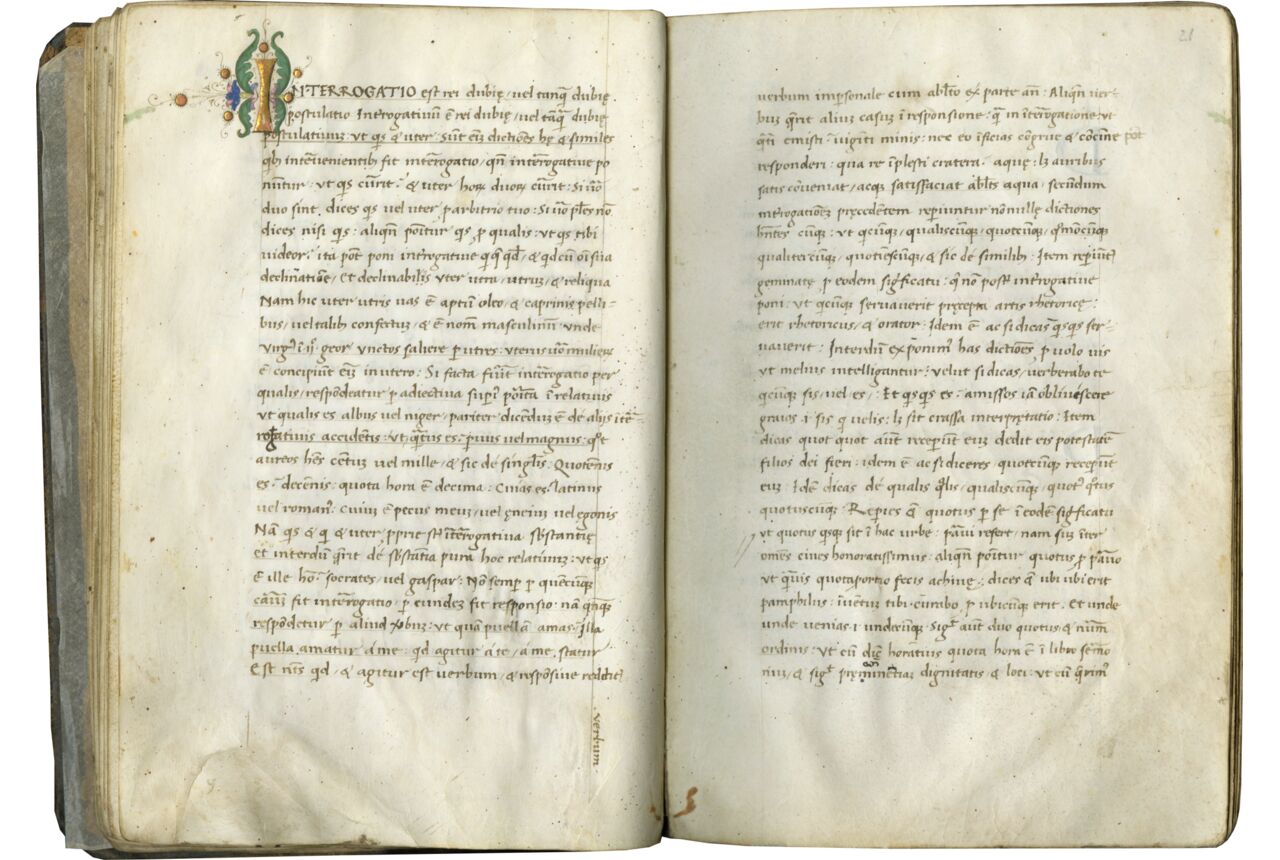 INTERROGATIO est rei dubię, vel tanq̃ dubię
postulatio Interogatiuũ ẽ rei dubię, vel tãq̃ dubię
postulatiuuȝ: ut q̃s & uter: Sũt eĩȝ dictiões hę & similes
q̃b̃ interuenientib̃ fit interrogatio, qñ interrogatiue po
nũtur: ut q̃s cũrit: & uter hoꝝ duoꝝ cũrit: Si ũo
duo sint, dices q̃s vel uter, p arbitrio tuo: Si ũo plẽs nõ
dices nisi q̃s: aliqñ põitur q̃s, p qualis: ut q̃s tibi
uideor: ita põt poni interrogatiue
declinatiõe, Et declinabilis uter utra, utruȝ, & reliqua
Nam hic uter utris uas ẽ aptũ oleo, & caprinis pelli-
bus, uel talib̃ confectuȝ, & ẽ nom̃ masculinũ unde
Virg̃ ĩ ij geor unctos saliere p utres: uterus ũo mulieris
ẽ concipiũt eĩȝ in utero: Si facta fũit interrogatio per
qualis, respõdeatur p adiectiua supĩ põita ĩ relatiuis
ut qualis es albus uel niger, pariter dicẽduȝ ẽ de alijs ĩte
rogatiuis accidẽtis: ut, q̃tus es: paruus uel magnus: q̃t
aureos hẽs cẽtuȝ uel mille, & sic de singl̃is: Quotẽnus
es: decẽnis: quota hora ẽ decima: Cuias es: latinus
uel roman9: Cuiũ ẽ pecus meuȝ, uel ęneiuȝ uel egonis
Nã q̃s & q̃ & uter, pprie st̃ ĩterogatiua sb̃stantię
et interdũ q̃rit de sb̃stãtia pura hoc relatiuuȝ: ut q̃s
ẽ ille ho: socrates, uel gaspar: Nõ semp p quẽcũq̃
cãũ fit interrogatio, p eundeȝ fit responsio: nã q̃nq̃
respõdetur p aliud ũbuȝ: ut quã puellã amas: Illa
puella amatur á me: q̃d agitur á te, á me, statur
Est nãs q̃d, & agitur est uerbum, & respõsiue reddit
verbum
21
verbum impersonale cum abl̃to ex parte añ: Aliqñ ver-
bũ q̃rit alius casus ĩ responsione: q̃ in ĩterõgatione: ut
q̃ti emisti: uigĩti minis: nec eo ĩficias cõgrue & cõcine põt
responderi: qua re ĩplesti cratera: aquę: lȝ auribus
satis cõueniat, acq̃ satisfaciat abl̃ts aqua: secũdum
interogationeȝ pręcedẽtem reperiuntur nõnullę dictiones
hñtes cũq̃: ut q̃cũq̃, qualiscũq̃, quotcũq̃, q̃mõcũq̃
qualitercũq̃, quotiescũq̃, & sic de similib̃: Item repiũt̃
gemmatę p eodem sig̃ficatu: q̃ nõ post̃ interogatiue
poni: ut q̃cũq̃ seruauerit pręcepta artis rhetoricę:
erit rhetoricus, & orator: Idem ẽ ac si dicas q̃sq̃s ser-
uauerit: Interdũ expõnimus has dictiões, p uolo uis
ut melius intelligantur: velut si dicas, verberabo te
q̃cũq̃ sis, uel es: Et q̃sq̃s es: amissos iã obliuiscere
graios: i sis q̃ uelis: lȝ sit crassa interpretatio: Item
dicas quot quot aũt recepũt euȝ dedit eis potestatẽ
filios dei fieri: idem ẽ ac si diceres, quotcũq̃ recepũt
euȝ: Idẽ dicas de qualis q̃lis, qualiscũq̃, quot9 q̃tus
quotuscũq̃: Repies ã quotus p se ĩ eodẽ sig̃ficatu
ut quotus q̃sq̃ sit ĩ hac urbe: parũi refert, nam suȝ ĩter
omẽs ciues honoratissimus: aliqñ põitur quotus, p paruo
ut q̃uis quota portio fecis achiuę: dices ã ubi ubi erit
pamphilus: ĩuẽtuȝ tibi curabo, p ubicũq̃ erit. Et unde
unde venias i undecũq̃: Sig̃t aũt duo quotus & nũm
ordinis: ut cũ diȩ horatius quota hora ẽ ĩ libro sermo
niȝ, & sig̃t pręminẽtiaȝ dignitatis & loci: ut cũ q̃rimꝰ